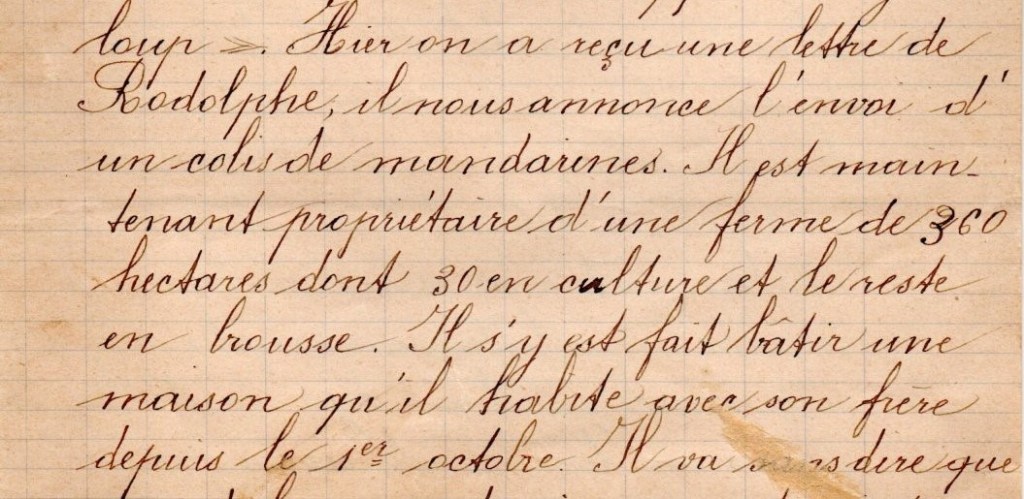 loup ». Hier on a reçu une lettre de
Rodolphe, il nous annonce l'envoi d'
un colis de mandarines. Il est main-
tenant propriétaire d'une ferme de 360
hectares dont 30 en culture et le reste
en brousse. Il s'y est fait bâtir une
maison qu'il habite avec son frère
depuis le 1er octobre. Il va sans dire que